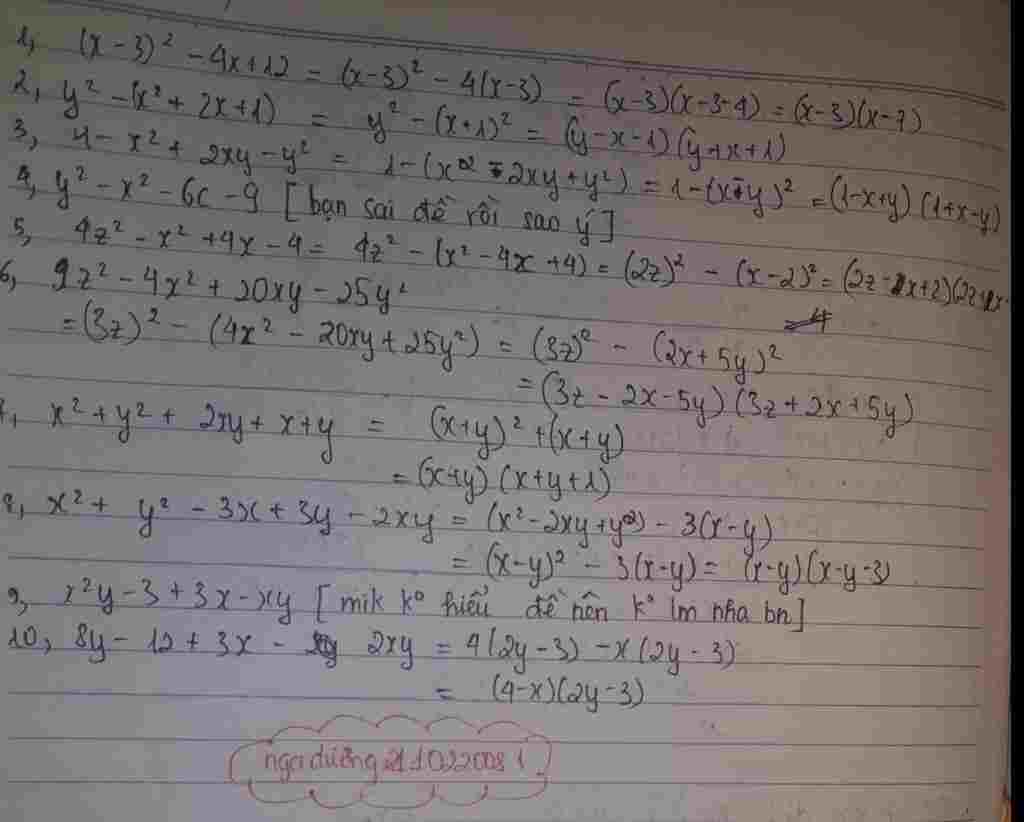 1, (x-3)² - 4x+12 = (x-3)² - 4(x-3) = (x-3)(x-3-4) = (x-3)(x-7)
2, y² - (x² + 2x+1) = y² - (x+1)² = (y-x-1)(y+x+1)
3, 1 - x² + 2xy - y² = 1-(x² - 2xy+y²) = 1-(x-y)² = (1-x+y)(1+x-y)
4, y² - x² - 6x - 9 [bạn sai đề rồi sao ý]
5, 4z² - x² + 4x - 4 = 4z² - (x² - 4x + 4) = (2z)² - (x-2)² = (2z - x+2)(2z+x-
6, 9z² - 4x² + 20xy - 25y²
= (3z)² - (4x² - 20xy + 25y²) = (3z)² - (2x+5y)²
= (3z - 2x-5y)(3z+2x+5y)
7, x² + y² + 2xy + x+y = (x+y)² + (x+y)
= (x+y)(x+y+1)
8, x² + y² - 3x + 3y - 2xy = (x² - 2xy+y²) - 3(x-y)
= (x-y)² - 3(x-y) = (x-y)(x-y-3)
9, x²y - 3 + 3x - xy [mik k° hiểu đề nên k° lm nha bn]
10, 8y - 12 + 3x - 2xy = 4(2y-3) - x(2y-3)
= (4-x)(2y-3)